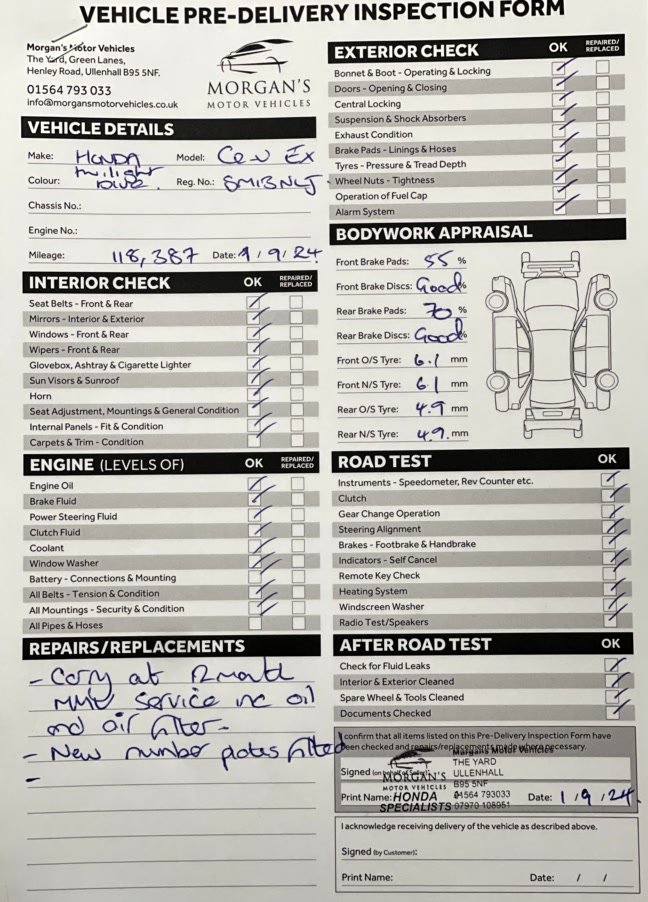 VEHICLE PRE-DELIVERY INSPECTION FORM
Morgan's Motor Vehicles
The Yard, Green Lanes,
Henley Road, Ullenhall B95 5NF.
01564 793 033
info@morgansmotorvehicles.co.uk
MORGAN'S
MOTOR VEHICLES
VEHICLE DETAILS
Make: HONDA Model: CRV EX
Colour: twilight blue. Reg. No.: SM13NLJ
Chassis No.:
Engine No.:
Mileage: 118,387 Date: 1/9/24
INTERIOR CHECK OK REPAIRED/REPLACED
Seat Belts - Front & Rear
Mirrors - Interior & Exterior
Windows - Front & Rear
Wipers - Front & Rear
Glovebox, Ashtray & Cigarette Lighter
Sun Visors & Sunroof
Horn
Seat Adjustment, Mountings & General Condition
Internal Panels - Fit & Condition
Carpets & Trim - Condition
ENGINE (LEVELS OF) OK REPAIRED/REPLACED
Engine Oil
Brake Fluid
Power Steering Fluid
Clutch Fluid
Coolant
Window Washer
Battery - Connections & Mounting
All Belts - Tension & Condition
All Mountings - Security & Condition
All Pipes & Hoses
REPAIRS/REPLACEMENTS
- Carry out 12 month
MMV Service inc oil
and oil filter -
- New number plates fitted
-
EXTERIOR CHECK OK REPAIRED/REPLACED
Bonnet & Boot - Operating & Locking
Doors - Opening & Closing
Central Locking
Suspension & Shock Absorbers
Exhaust Condition
Brake Pads - Linings & Hoses
Tyres - Pressure & Tread Depth
Wheel Nuts - Tightness
Operation of Fuel Cap
Alarm System
BODYWORK APPRAISAL
Front Brake Pads: 55 %
Front Brake Discs: Good %
Rear Brake Pads: 70 %
Rear Brake Discs: Good %
Front O/S Tyre: 6.1 mm
Front N/S Tyre: 6.1 mm
Rear O/S Tyre: 4.9 mm
Rear N/S Tyre: 4.9. mm
ROAD TEST OK
Instruments - Speedometer, Rev Counter etc.
Clutch
Gear Change Operation
Steering Alignment
Brakes - Footbrake & Handbrake
Indicators - Self Cancel
Remote Key Check
Heating System
Windscreen Washer
Radio Test/Speakers
AFTER ROAD TEST OK
Check for Fluid Leaks
Interior & Exterior Cleaned
Spare Wheel & Tools Cleaned
Documents Checked
I confirm that all items listed on this Pre-Delivery Inspection Form have
been checked and repairs/replacements made where necessary.
Morgans Motor Vehicles
THE YARD
Signed (on behalf of Seller): MORGAN'S ULLENHALL
MOTOR VEHICLES B95 5NF
Print Name: HONDA 01564 793033 Date: 1/9/24.
SPECIALISTS 07970 108951
I acknowledge receiving delivery of the vehicle as described above.
Signed (by Customer):
Print Name: Date: / /